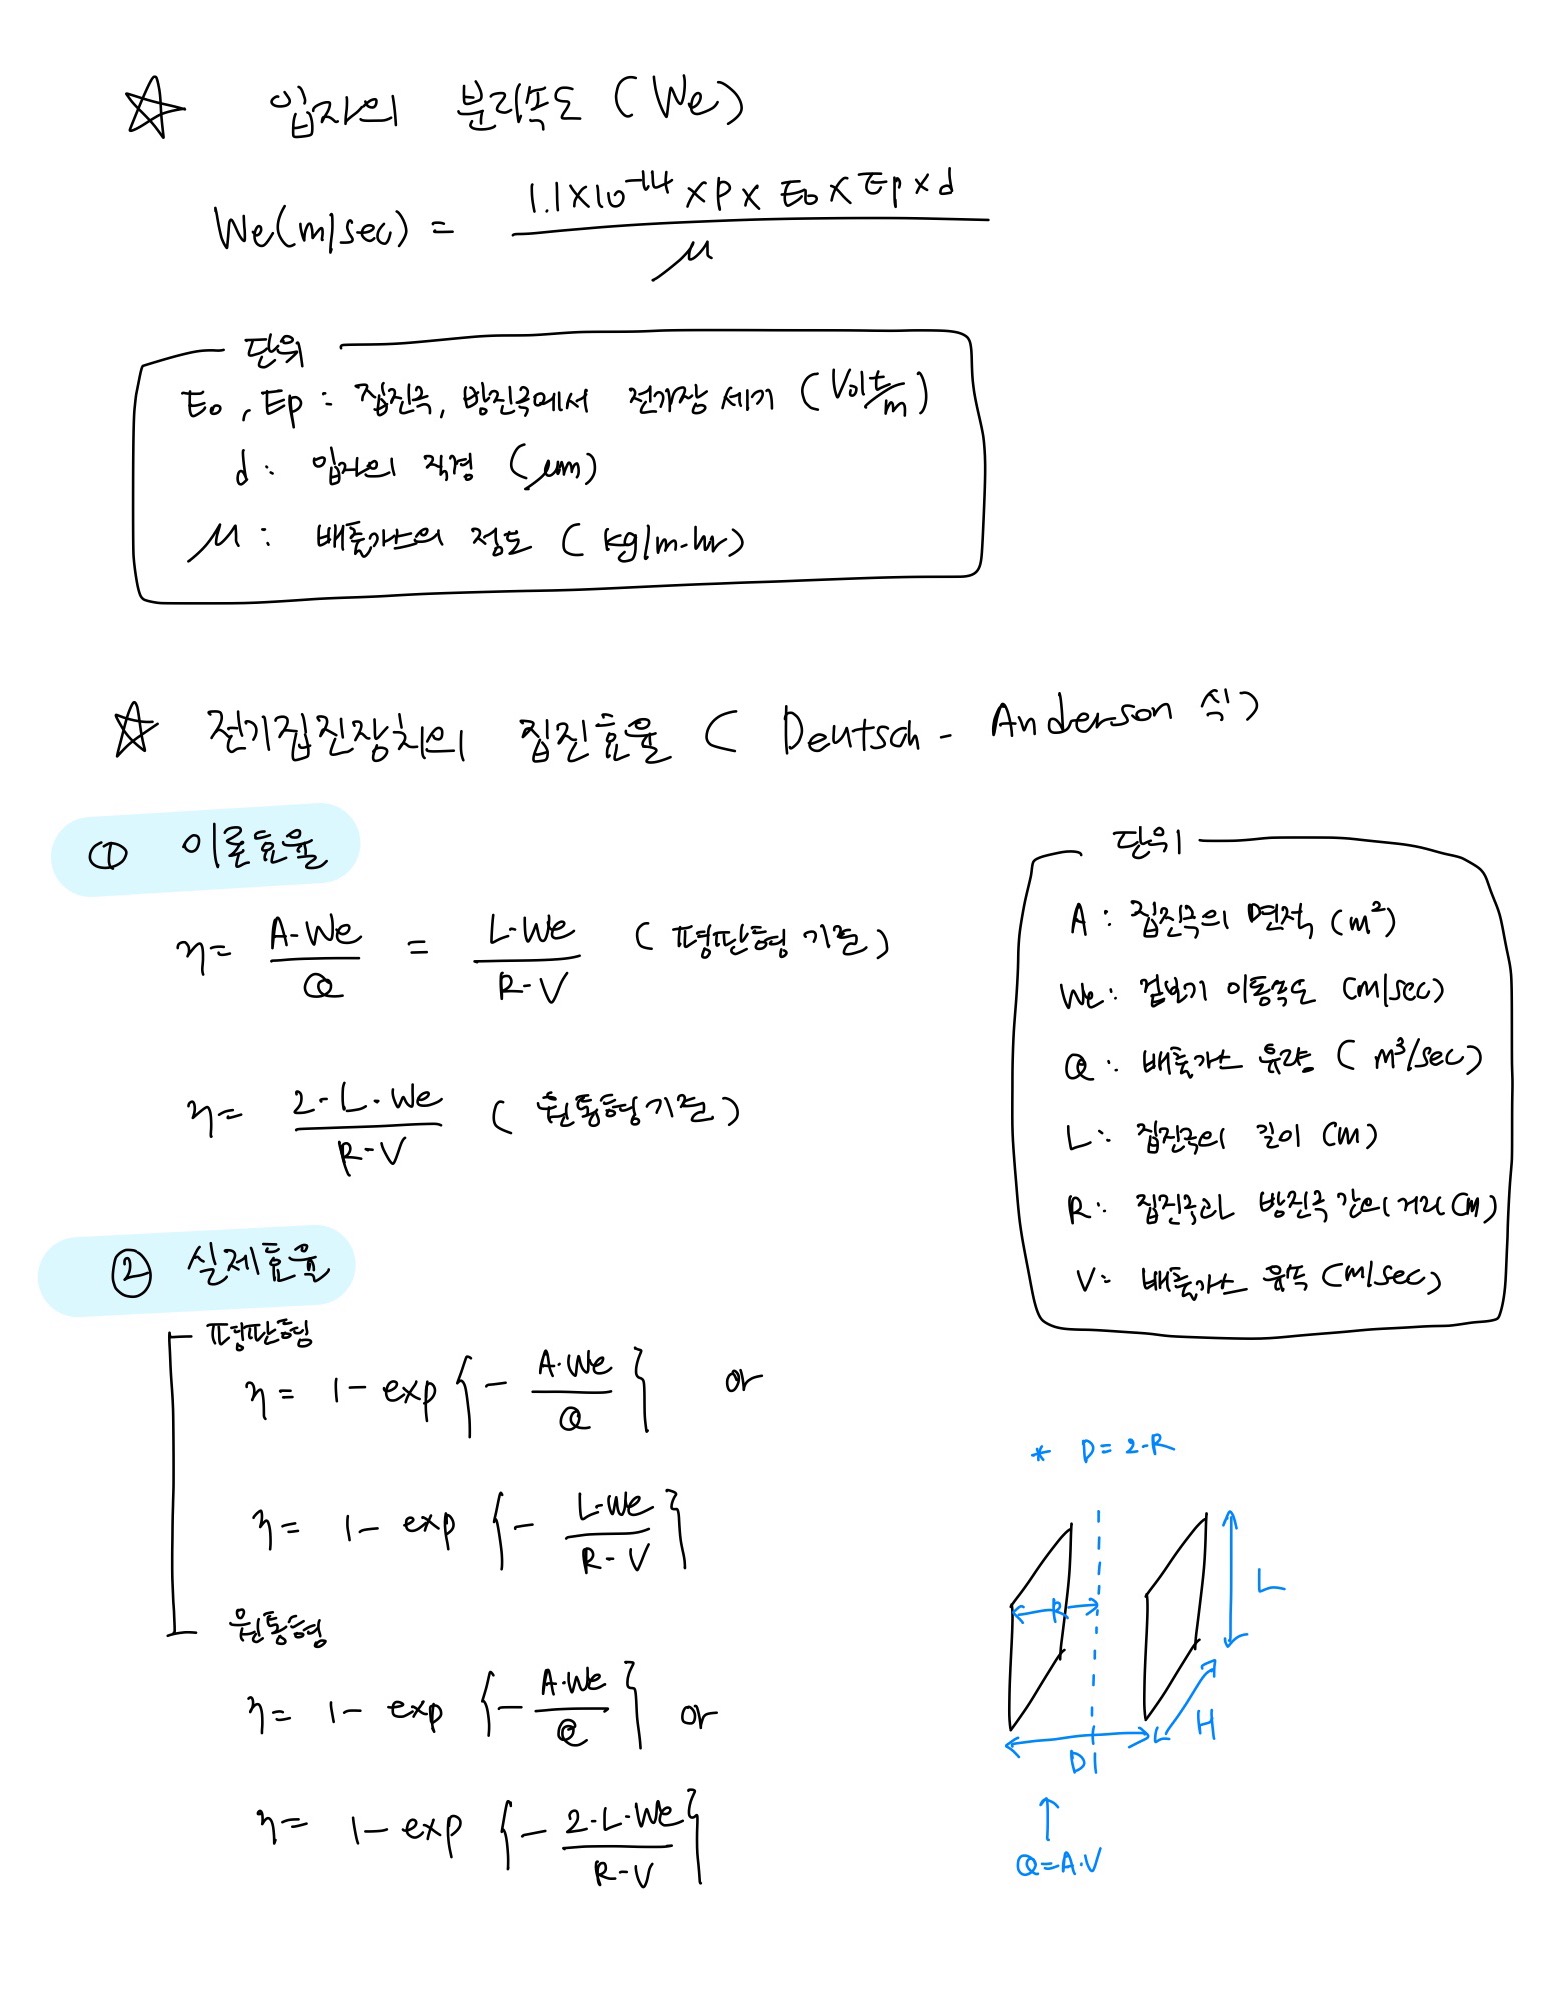 ☆ 입자의 분리속도 (We)
We(m/sec) = 1.1×10⁻¹⁴ × P × E₀ × Ep × d / μ
단위
E₀, Ep : 집진극, 방진극에서 전기장 세기 (Volt/m)
d : 입자의 직경 (μm)
μ : 배출가스의 점도 (kg/m·hr)
☆ 전기집진장치의 집진효율 (Deutsch - Anderson 식)
① 이론효율
η = A·We / Q = L·We / R·V (평판형 기준)
η = 2·L·We / R·V (원통형 기준)
단위
A : 집진극의 면적 (m²)
We : 겉보기 이동속도 (m/sec)
Q : 배출가스 유량 (m³/sec)
L : 집진극의 길이 (m)
R : 집진극과 방진극 간의 거리 (m)
V : 배출가스 유속 (m/sec)
② 실제효율
평판형
η = 1 - exp {- A·We / Q} or
η = 1 - exp {- L·We / R·V}
원통형
η = 1 - exp {- A·We / Q} or
η = 1 - exp {- 2·L·We / R·V}
* D = 2·R
R
L
H
D
Q = A·V